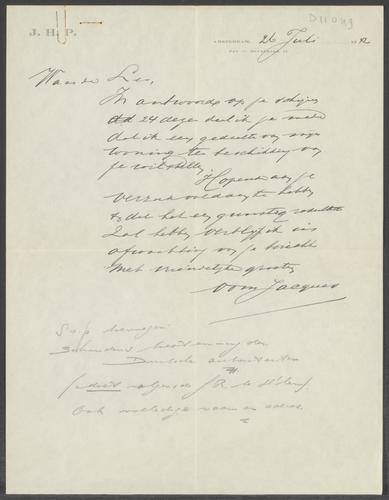 D11049
J. H. P.
AMSTERDAM, 26 Juli
Waarde Leo,
In antwoord op je schrijven
dd 24 dezer deel ik je mede
dat ik een gedeelte van mijn
woning ter beschikking van
je wil stellen,
Hopende aan je
verzoek voldaan te hebben
& dat het een gunstig resultaat
zal hebben verblijf ik in
afwachting van je bericht
Met vriendelijke groeten
oom Jacques
S.v.p. bewijzen
Duitsche autoriteiten
Ook volledige naam en adres.